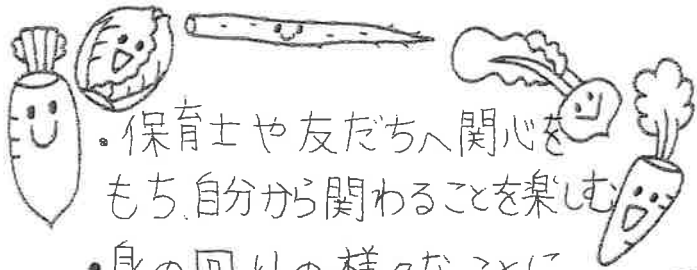 ・保育士や友だちへ関心を
もち、自分から関わることを楽しむ
・身の回りの様々なことに